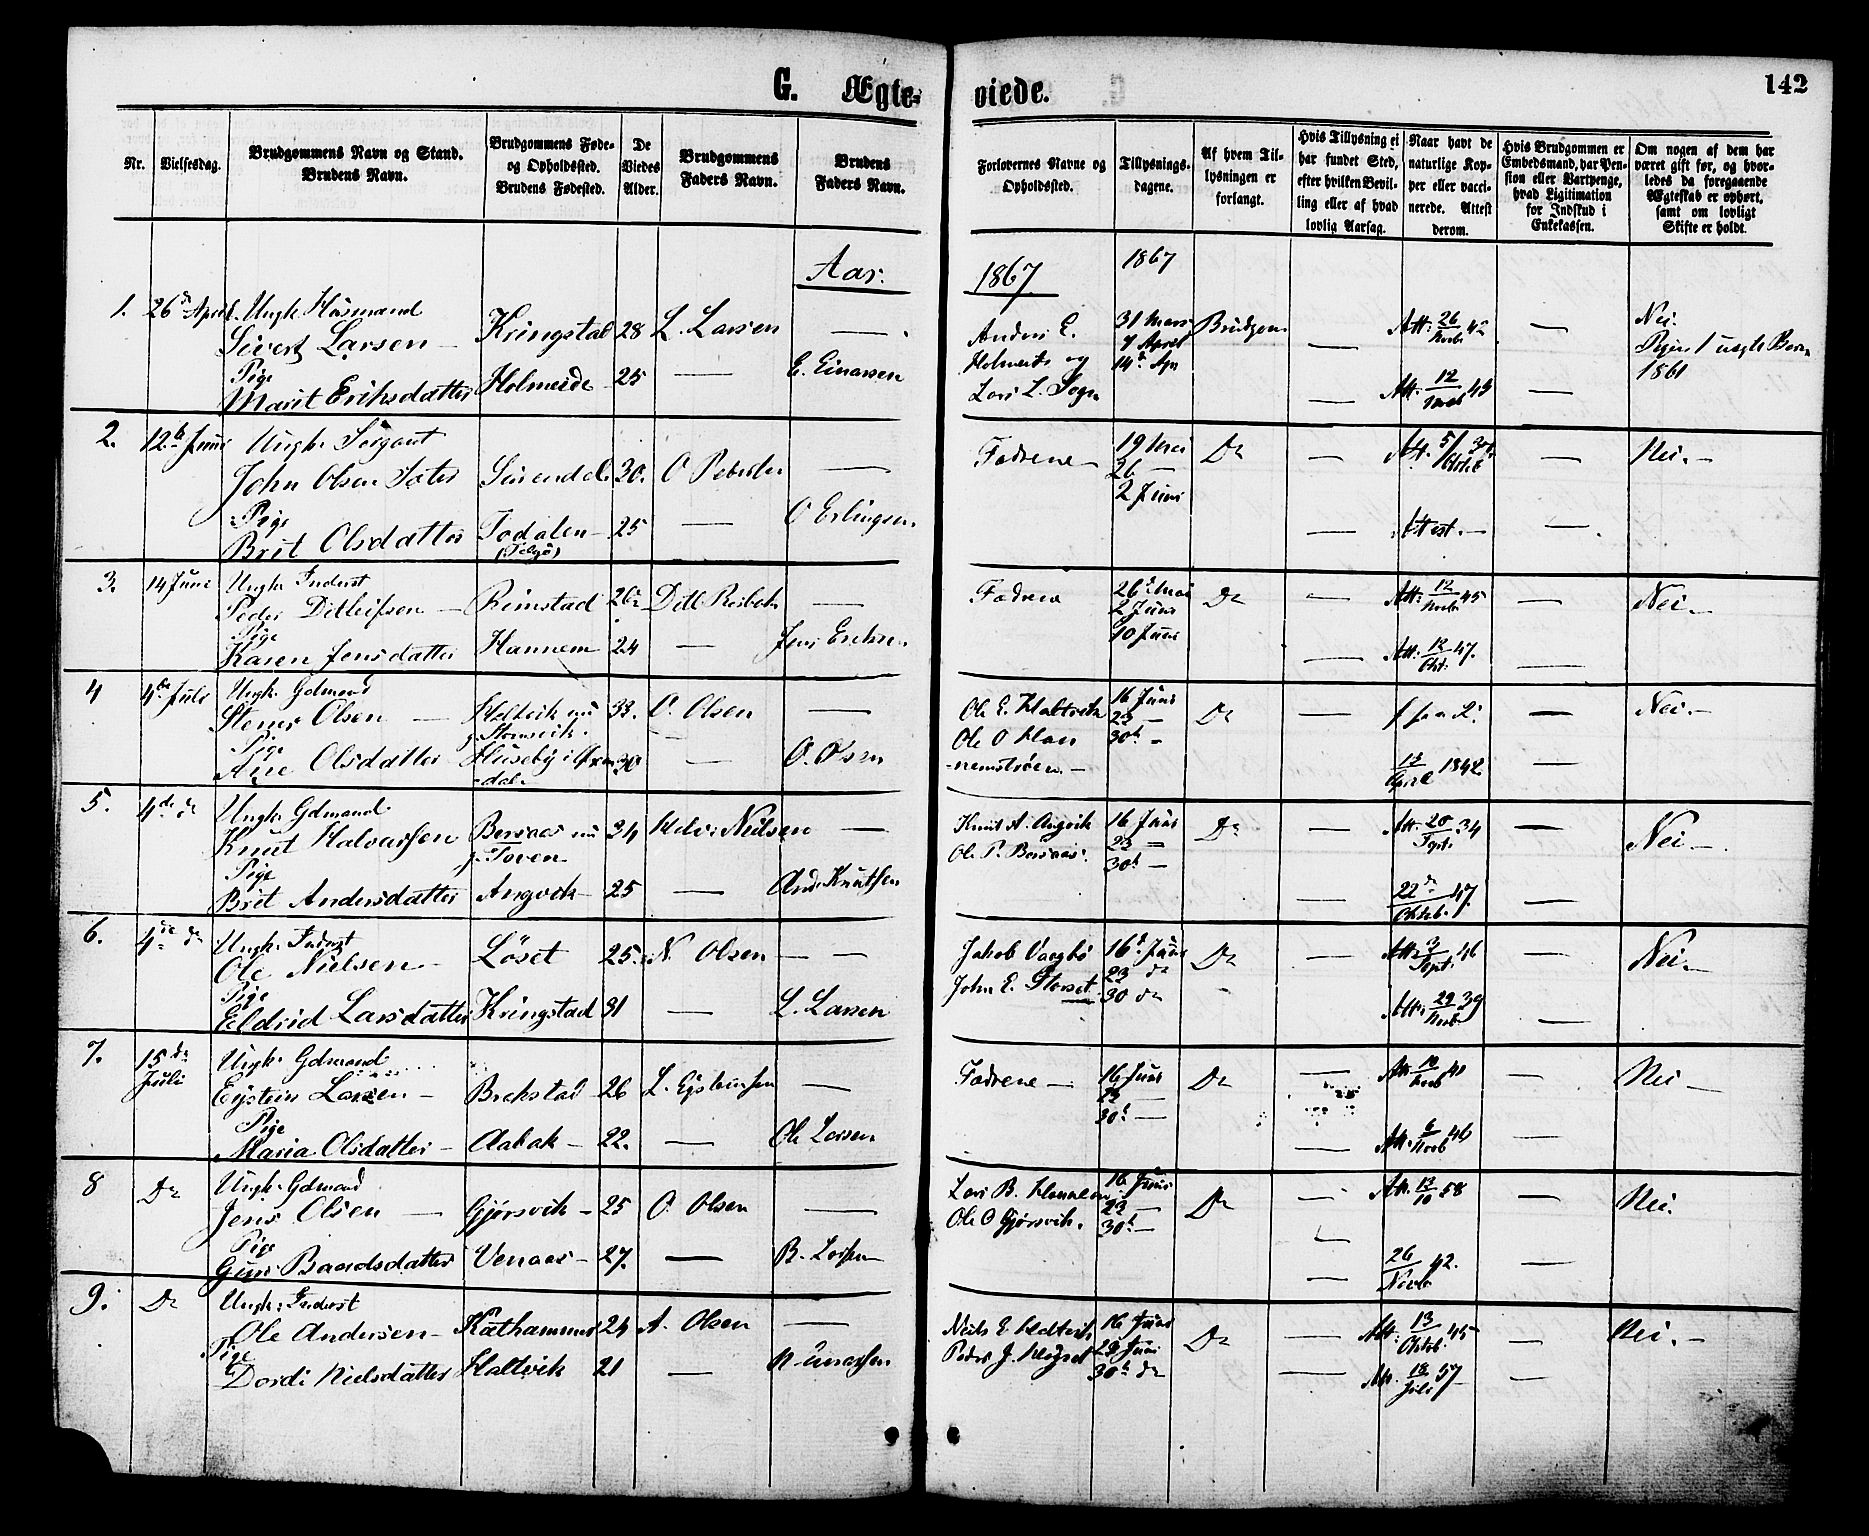 G. Ægte-
viede.
142
Nr.
Vielsesdag.
Brudgommens Navn og Stand.
Brudens Navn.
Brudgommens Føde-
og Opholdssted.
Brudens Fødested.
De
Viedes
Alder.
Brudgommens
Faders Navn.
Brudens
Faders Navn.
Forlovernes Navne og
Opholdssted.
Tillysnings-
dagene.
Af hvem Til-
lysningen er
forlangt.
Hvis Tillysning ei
har fundet Sted,
efter hvilken Bevil-
ling eller af hvad
lovlig Aarsag.
Naar havt de
naturlige Kop-
per eller vacci-
nerede. Attest
derom.
Hvis Brudgommen er
Embedsmand, har Pen-
sion eller Vartpenge,
hvad Legitimation
for Indskud i
Enkekassen.
Om nogen af dem har
været gift før, og hvor-
ledes da foregaaende
Ægteskab er ophørt,
samt om lovligt
Skifte er holdt.
Aar.
1867
1867
1. 26 April Ungk. Husmand
Sivert Larsen Kringstad 28 L. Larsen
Pige
Marit Eriksdatter Holmeide 25 — E. Einarsen
Anders E.
Holmeide og
Lars L.
31 Mars
7 April
14 Apr
Brudgom
Att: 26/Novb 42
Att. 12/ 43
Nei.
Pigen 1 uægte Barn
1861
2. 12 Juni Ungk. Sergant
John Olsen Sæter Surendal 30. O Peterson
Pige
Brit Olsdatter Todalen 25 — O Erlingsen
Fædrene
19 Mai
26 —
2 Juni
Do
Attest. —
Nei. —
3. 14 Juni Ungk. Inderst
Peder Ditlefsen Rimstad 26 Ditl Risbak
Pige
Karen Jensdatter Hannem 24 — Jens Eriksen
Fædrene
26 Mai
2 Juni
10 Juni
Do
Att: 12/Novb 45
Att: 12/Okt. 47.
Nei. —
4 4de Juli Ungk. Gdmand
Stener Olsen Holtvik nu 33. O. Olsen
Pige
Ane Olsdatter Huseby i 30 — O. Olsen
Ole E. Haltvik
Ole O Han
nemstrøen. —
16 Juni
23 —
30 —
Do
13/April 1842
Nei. —
5. 4de do Ungk: Gdmand
Knut Halvarssen Bersaas nu 34 Halv: Neilsen
Toven
Pige
Brit Andersdatter Angvik 25 — And. Knutsen
Knut A. Angvik
Ole P. Bersaas.
16 Juni
23 —
30 —
Do
Att: 20/Sept. 34
22/Oktob. 47
Nei —
6. 4de do Ungk. Inderst
Ole Nielsen Løset 25. N. Olsen
Pige
Eldrid Larsdatter Kringstad 31 — L. Larsen
Jakob Vaagbø
John E. Storset
16 Juni
23 do
30 do
Do
Att: 3/Sept. 46
Att: 29/Novb 39
Nei. —
7. 15de Juli Ungk. Gdmand
Eystein Larsen Brekstad 26 L. Eysteinsen
Pige
Maria Olsdatter Aabak 22. — Ole Larsen
Fædrene —
16 Juni
23 —
30 —
Do
Att. 6/Novb 46
Nei —
8 Do Ungk. Gdmand
Jens Olsen Gjørsvik 25 O. Olsen
Pige
Guri Baardsdatter Venaas 27. — B. Larsen
Lars B.
Ole O Gjørsvik.
16 Juni
23 —
30 —
Do
Att. 13/10 58
26/Novb 42.
Nei.
9. Do Ungk: Inderst
Ole Andersen Kathammer 24 A. Olsen
Pige
Dordi Nielsdatter Haltvik 21 —
Neils E. Haltvik
Peder J.
16 Juni
23 Juni
30 do
Do
Att: 13/Oktob. 45
Att. 18/Juli 57
Nei. —